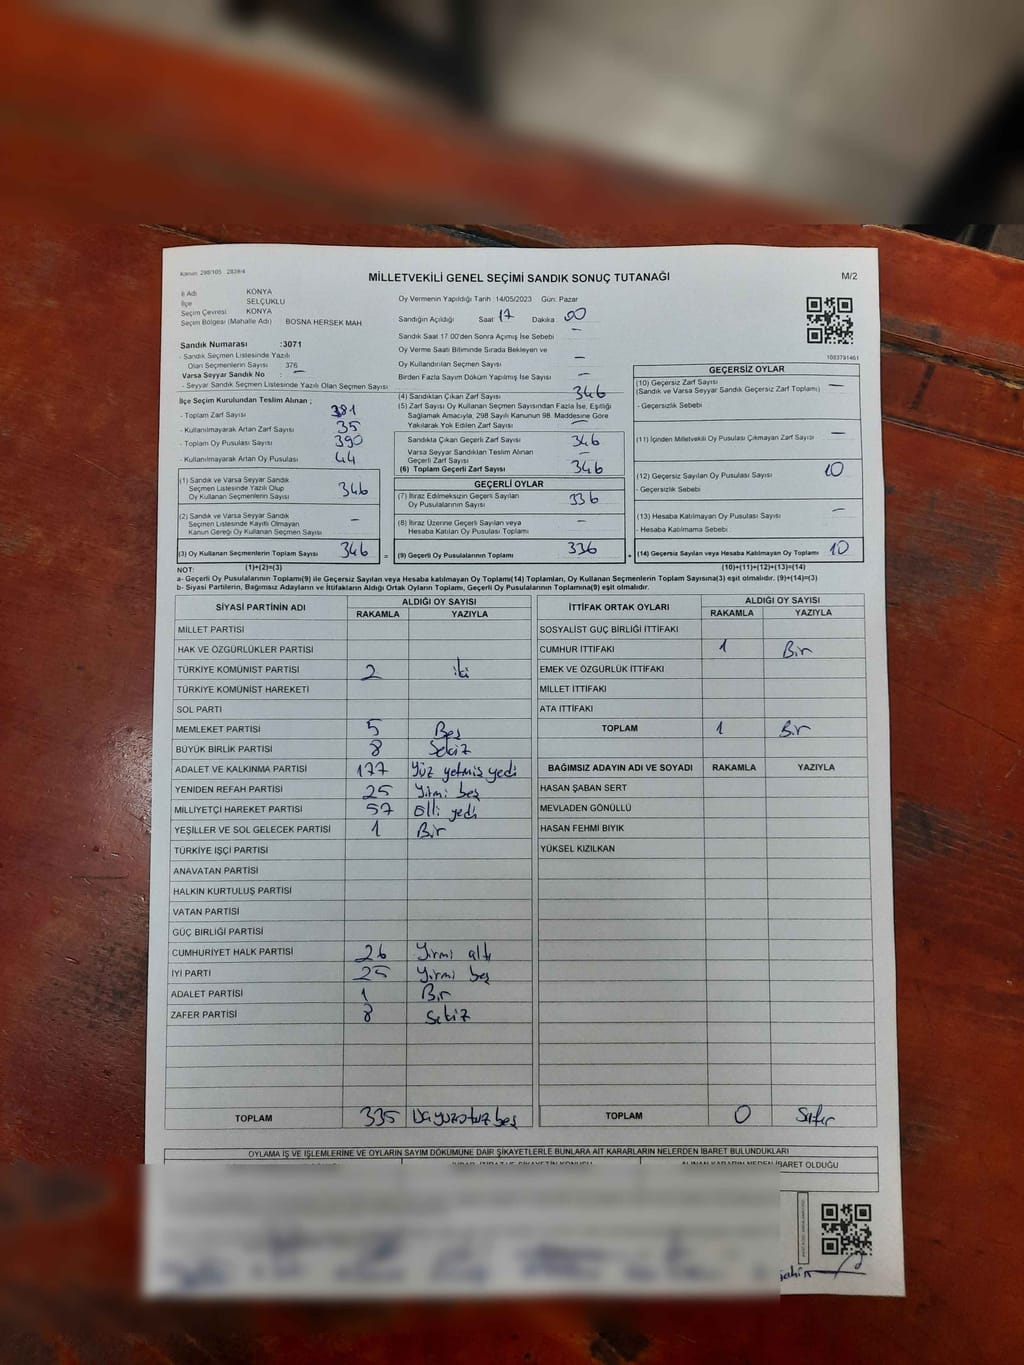 Kanun: 298/105 2839/4
MİLLETVEKİLİ GENEL SEÇİMİ SANDIK SONUÇ TUTANAĞI
M/2
İl Adı KONYA
İlçe SELÇUKLU
Seçim Çevresi KONYA
Seçim Bölgesi (Mahalle Adı) BOSNA HERSEK MAH
Sandık Numarası :3071
- Sandık Seçmen Listesinde Yazılı
Olan Seçmenlerin Sayısı 376
Varsa Seyyar Sandık No : –
- Seyyar Sandık Seçmen Listesinde Yazılı Olan Seçmen Sayısı
İlçe Seçim Kurulundan Teslim Alınan ;
- Toplam Zarf Sayısı 381
- Kullanılmayarak Artan Zarf Sayısı 35
- Toplam Oy Pusulası Sayısı 390
- Kullanılmayarak Artan Oy Pusulası 44
(1) Sandık ve Varsa Seyyar Sandık
Seçmen Listesinde Yazılı Olup
Oy Kullanan Seçmenlerin Sayısı 346
(2) Sandık ve Varsa Seyyar Sandık
Seçmen Listesinde Kayıtlı Olmayan
Kanun Gereği Oy Kullanan Seçmen Sayısı –
(3) Oy Kullanan Seçmenlerin Toplam Sayısı 346 =
(1)+(2)=(3)
Oy Vermenin Yapıldığı Tarih 14/05/2023 Gün: Pazar
Sandığın Açıldığı Saat 17 Dakika 00
Sandık Saat 17:00'den Sonra Açımış İse Sebebi –
Oy Verme Saati Bitiminde Sırada Bekleyen ve
Oy Kullandırılan Seçmen Sayısı –
Birden Fazla Sayım Döküm Yapılmış İse Sayısı –
(4) Sandıktan Çıkan Zarf Sayısı 346
(5) Zarf Sayısı Oy Kullanan Seçmen Sayısından Fazla İse, Eşitliği
Sağlamak Amacıyla, 298 Sayılı Kanunun 98. Maddesine Göre
Yakılarak Yok Edilen Zarf Sayısı –
Sandıkta Çıkan Geçerli Zarf Sayısı 346
Varsa Seyyar Sandıktan Teslim Alınan
Geçerli Zarf Sayısı –
(6) Toplam Geçerli Zarf Sayısı 346
GEÇERLİ OYLAR
(7) İtiraz Edilmeksizin Geçerli Sayılan
Oy Pusulalarının Sayısı 336
(8) İtiraz Üzerine Geçerli Sayılan veya
Hesaba Katılan Oy Pusulası Toplamı –
(9) Geçerli Oy Pusulalarının Toplamı 336 +
1083791461
GEÇERSİZ OYLAR
(10) Geçersiz Zarf Sayısı –
(Sandık ve Varsa Seyyar Sandık Geçersiz Zarf Toplamı)
- Geçersizlik Sebebi
(11) İçinden Milletvekili Oy Pusulası Çıkmayan Zarf Sayısı –
(12) Geçersiz Sayılan Oy Pusulası Sayısı 10
- Geçersizlik Sebebi
(13) Hesaba Katılmayan Oy Pusulası Sayısı –
- Hesaba Katılmama Sebebi
(14) Geçersiz Sayılan veya Hesaba Katılmayan Oy Toplamı 10
(10)+(11)+(12)+(13)=(14)
NOT:
a- Geçerli Oy Pusulalarının Toplamı(9) ile Geçersiz Sayılan veya Hesaba katılmayan Oy Toplamı(14) Toplamları, Oy Kullanan Seçmenlerin Toplam Sayısına(3) eşit olmalıdır. (9)+(14)=(3)
b- Siyasi Partilerin, Bağımsız Adayların ve İttifakların Aldığı Ortak Oyların Toplamı, Geçerli Oy Pusulalarının Toplamına(9) eşit olmalıdır.
SİYASİ PARTİNİN ADI ALDIĞI OY SAYISI
RAKAMLA YAZIYLA
MİLLET PARTİSİ
HAK VE ÖZGÜRLÜKLER PARTİSİ
TÜRKİYE KOMÜNİST PARTİSİ 2 iki
TÜRKİYE KOMÜNİST HAREKETİ
SOL PARTİ
MEMLEKET PARTİSİ 5 Beş
BÜYÜK BİRLİK PARTİSİ 8 Sekiz
ADALET VE KALKINMA PARTİSİ 177 Yüz yetmiş yedi
YENİDEN REFAH PARTİSİ 25 Yirmi beş
MİLLİYETÇİ HAREKET PARTİSİ 57 Elli yedi
YEŞİLLER VE SOL GELECEK PARTİSİ 1 Bir
TÜRKİYE İŞÇİ PARTİSİ
ANAVATAN PARTİSİ
HALKIN KURTULUŞ PARTİSİ
VATAN PARTİSİ
GÜÇ BİRLİĞİ PARTİSİ
CUMHURİYET HALK PARTİSİ 26 Yirmi altı
İYİ PARTİ 25 Yirmi beş
ADALET PARTİSİ 1 Bir
ZAFER PARTİSİ 8 Sekiz
TOPLAM 335 Üçyüzotuzbeş
İTTİFAK ORTAK OYLARI ALDIĞI OY SAYISI
RAKAMLA YAZIYLA
SOSYALİST GÜÇ BİRLİĞİ İTTİFAKI
CUMHUR İTTİFAKI 1 Bir
EMEK VE ÖZGÜRLÜK İTTİFAKI
MİLLET İTTİFAKI
ATA İTTİFAKI
TOPLAM 1 Bir
BAĞIMSIZ ADAYIN ADI VE SOYADI RAKAMLA YAZIYLA
HASAN ŞABAN SERT
MEVLADEN GÖNÜLLÜ
HASAN FEHMİ BIYIK
YÜKSEL KIZILKAN
TOPLAM 0 Sıfır
OYLAMA İŞ VE İŞLEMLERİNE VE OYLARIN SAYIM DÖKÜMÜNE DAİR ŞİKAYETLERLE BUNLARA AİT KARARLARIN NELERDEN İBARET BULUNDUKLARI
ALINAN KARARIN NEDEN İBARET OLDUĞU